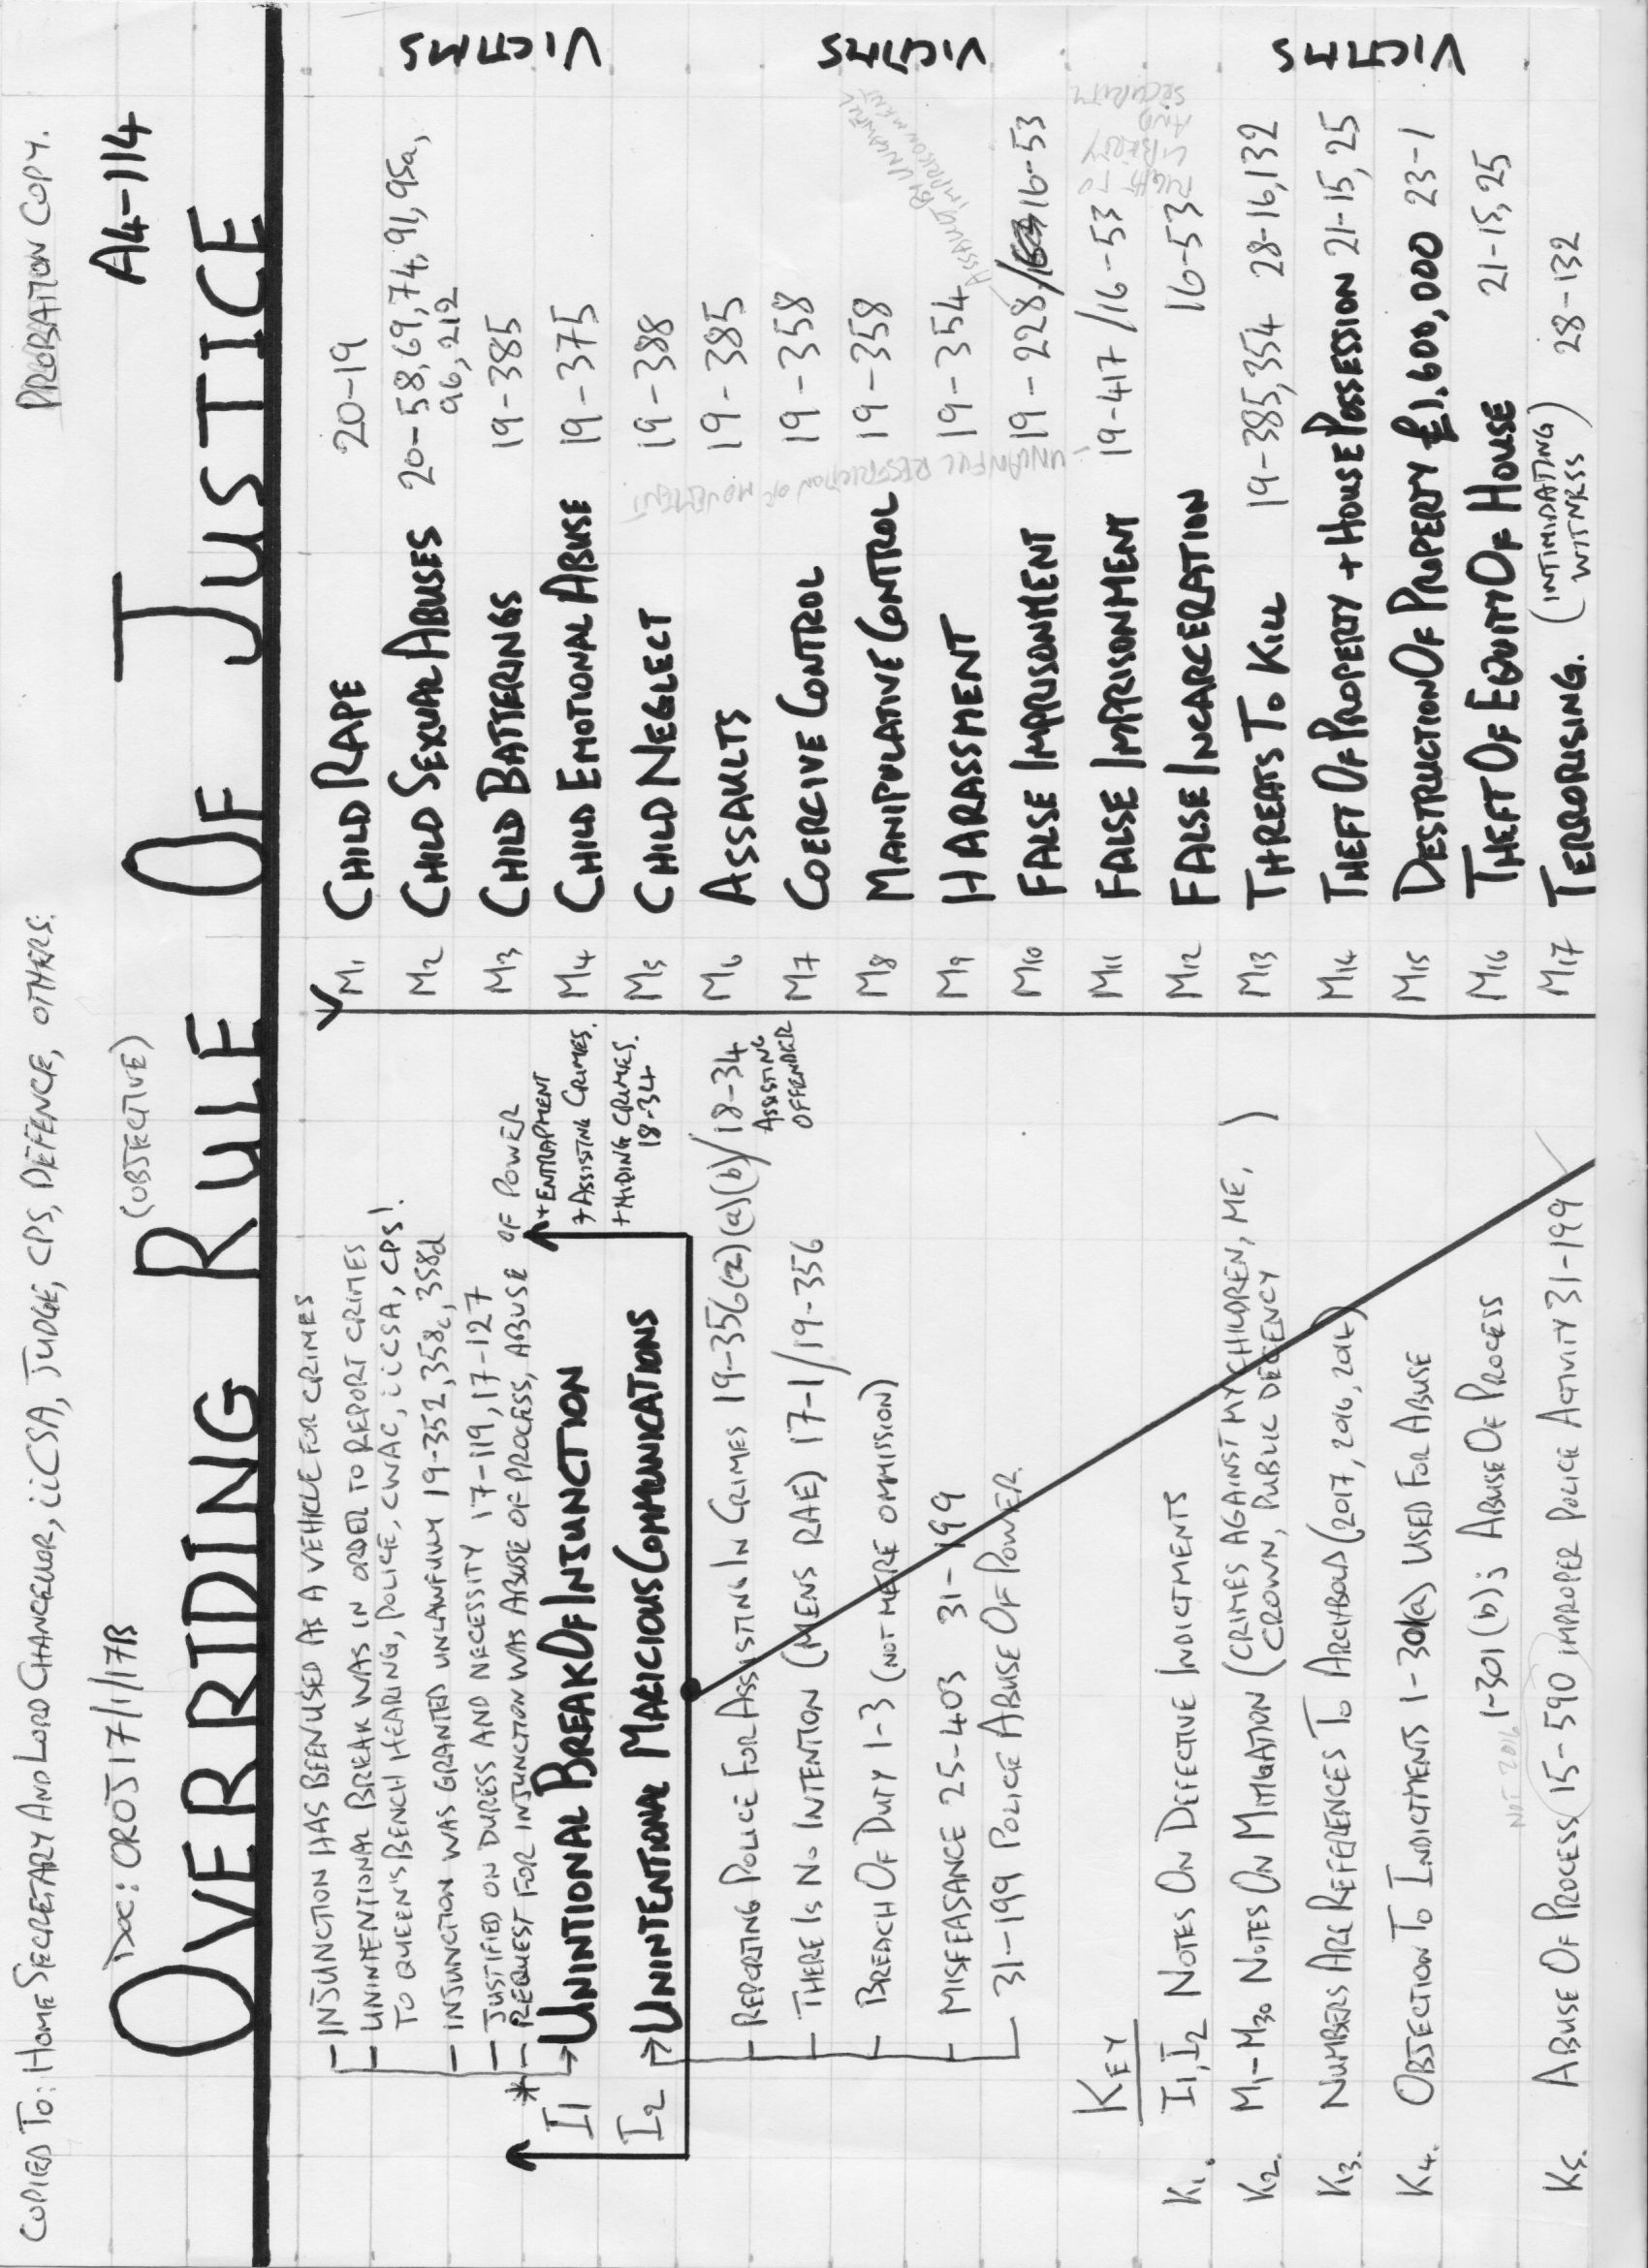 COPIED TO: HOME SECRETARY AND LORD CHANCELLOR, iiCSA, JUDGE, CPS, DEFENCE, OTHERS.
PROBATION COPY.
DOC: OROJ 17/1/17B
(OBJECTIVE)
A4-114
OVERRIDING RULE OF JUSTICE
- INJUNCTION HAS BEEN USED AS A VEHICLE FOR CRIMES
- UNINTENTIONAL BREAK WAS IN ORDER TO REPORT CRIMES
TO QUEEN'S BENCH HEARING, POLICE, CWAC, iiCSA, CPS!
- INJUNCTION WAS GRANTED UNLAWFULLY 19-352, 358c, 358d
- JUSTIFIED ON DURESS AND NECESSITY 17-119, 17-127
* - REQUEST FOR INJUNCTION WAS ABUSE OF PROCESS, ABUSE OF POWER
I1 → UNINTIONAL BREAK OF INJUNCTION
+ ENTRAPMENT
+ ASSISTING CRIMES.
+ HIDING CRIMES.
18-34
I2 → UNINTENTIONAL MALICIOUS COMMUNICATIONS
- REPORTING POLICE FOR ASSISTING IN CRIMES 19-356(2)(a)(b)/18-34
ASSISTING
OFFENDER
- THERE IS NO INTENTION (MENS RAE) 17-1/19-356
- BREACH OF DUTY 1-3 (NOT MERE OMMISSION)
- MISFEASANCE 25-403 31-199
- 31-199 POLICE ABUSE OF POWER.
KEY
K1. I1, I2 NOTES ON DEFECTIVE INDICTMENTS
K2. M1-M30 NOTES ON MITIGATION (CRIMES AGAINST MY CHILDREN, ME,
CROWN, PUBLIC DECENCY )
K3. NUMBERS ARE REFERENCES TO ARCHBOLD (2017, 2016, 2014)
K4. OBJECTION TO INDICTMENTS 1-301(a) USED FOR ABUSE
1-301(b); ABUSE OF PROCESS
NOT 2016
K5. ABUSE OF PROCESS 15-590 IMPROPER POLICE ACTIVITY 31-199
M1 CHILD RAPE 20-19
M2 CHILD SEXUAL ABUSES 20-58, 69, 74, 91, 95a,
96, 212
M3 CHILD BATTERINGS 19-385
M4 CHILD EMOTIONAL ABUSE 19-375
M5 CHILD NEGLECT 19-388
M6 ASSAULTS 19-385
M7 COERCIVE CONTROL 19-358
M8 MANIPULATIVE CONTROL 19-358
M9 HARASSMENT 19-354
M10 FALSE IMPRISONMENT 19-228/16-53
M11 FALSE IMPRISONMENT 19-417/16-53
M12 FALSE INCARCERATION 16-53
M13 THREATS TO KILL 19-385, 354 28-16, 132
M14 THEFT OF PROPERTY + HOUSE POSSESSION 21-15, 25
M15 DESTRUCTION OF PROPERTY £1,600,000 23-1
M16 THEFT OF EQUITY OF HOUSE 21-15, 25
M17 TERRORISING. (INTIMIDATING
WITNESS) 28-132
- UNLAWFUL RESTRICTION OF MOVEMENT.
ASSAULT BY UNLAWFUL
IMPRISONMENT
RIGHT TO
LIBERTY
AND
SECURITY
VICTIMS
VICTIMS
VICTIMS